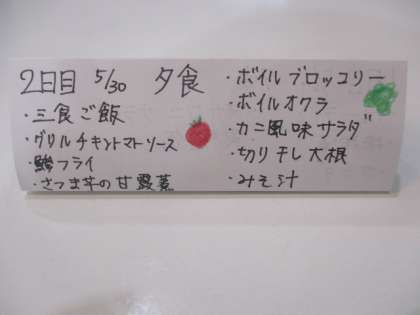 2日目 5/30 夕食
・三食ご飯
・グリルチキントマトソース
・鯵フライ
・さつま芋の甘露煮
・ボイルブロッコリー
・ボイルオクラ
・カニ風味サラダ
・切り干し大根
・みそ汁